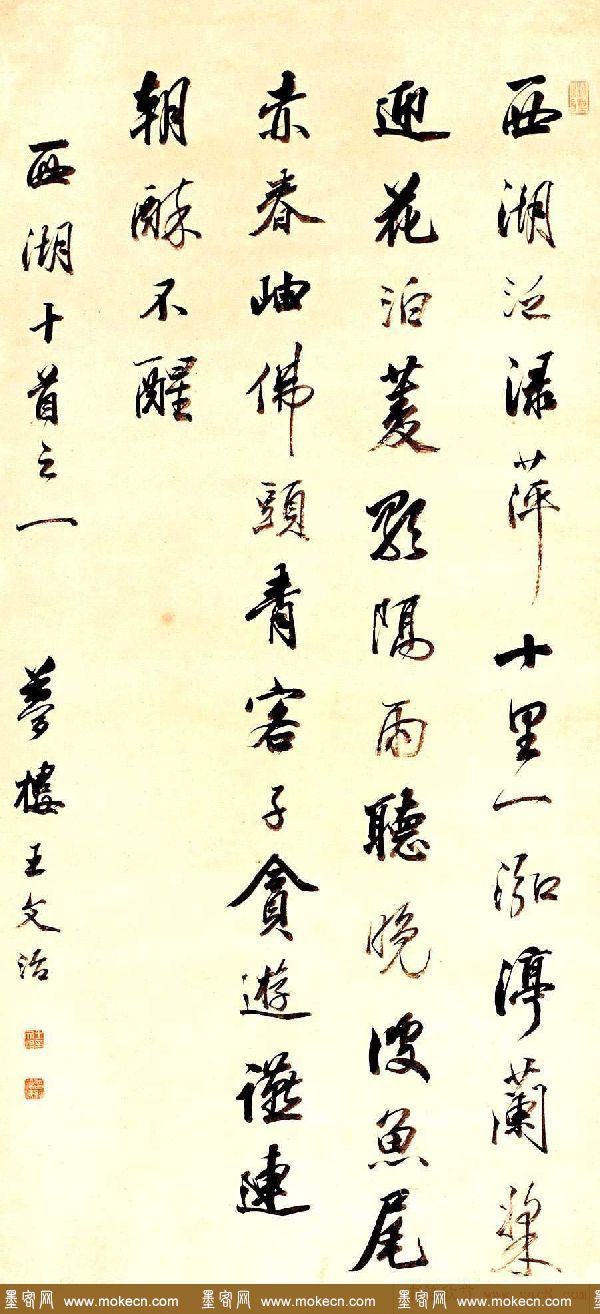 西湖泛渌萍十里一泓渟蘭槳
迎花泊菱歌隔雨聽晚波魚尾
赤春岫佛頭青客子貪遊讌連
朝酥不醒
西湖十首之一 夢樓王文治
墨客网 www.mokecn.com 墨客网 www.mokecn.com 墨客网 www.mokecn.com